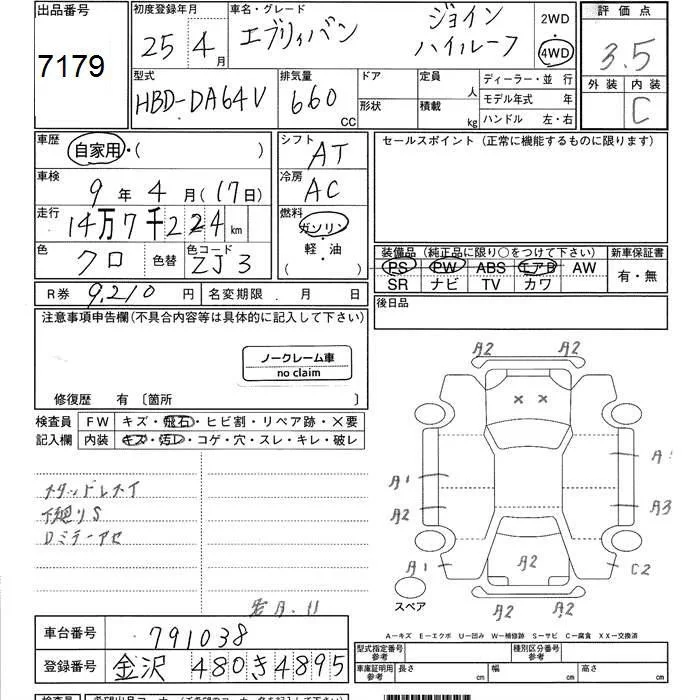 出品番号
7179
初度登録年月
25年 4月
車名・グレード
エブリィバン
ジョイン
ハイルーフ
2WD
・
4WD
評価点
3.5
外装 内装
C
型式
HBD-DA64V
排気量
660
CC
ドア
形状
定員
人
積載
kg
ディーラー・並 行
モデル年式 年
ハンドル 左・右
車歴
自家用・( )
車検
9年 4月(17日)
走行
14万7千224km
色
クロ
色替
色コード
ZJ3
シフト
AT
冷房
AC
燃料
ガソリン
・
軽・油
( )
セールスポイント (正常に機能するものに限ります)
装備品 (純正品に限り○をつけて下さい)
PS PW ABS エアB AW
SR ナビ TV カワ
新車保証書
有・無
R券 9,210円
名変期限 . 月 日
後日品
注意事項申告欄(不具合内容等は具体的に記入して下さい)
ノークレーム車
no claim
修復歴 有 〔箇所 〕
検査員
記入欄
FW キズ・飛石・ヒビ割・リペア跡・×要
内装 キズ・汚レ・コゲ・穴・スレ・キレ・破レ
スタッドレスイ
下廻りS
A2 A2
× ×
A1 A2
A1
A3
A2
A1
C2
A2 A2
スペア
A-キズ E-エクボ U-凹み W-補修跡 S-サビ C-腐食 XX-交換済
車台番号
791038
登録番号
金沢 480 き 4895
型式指定番号
参考
種別区分番号
参考
車庫証明用
参考
長さ cm
幅 cm
高さ cm